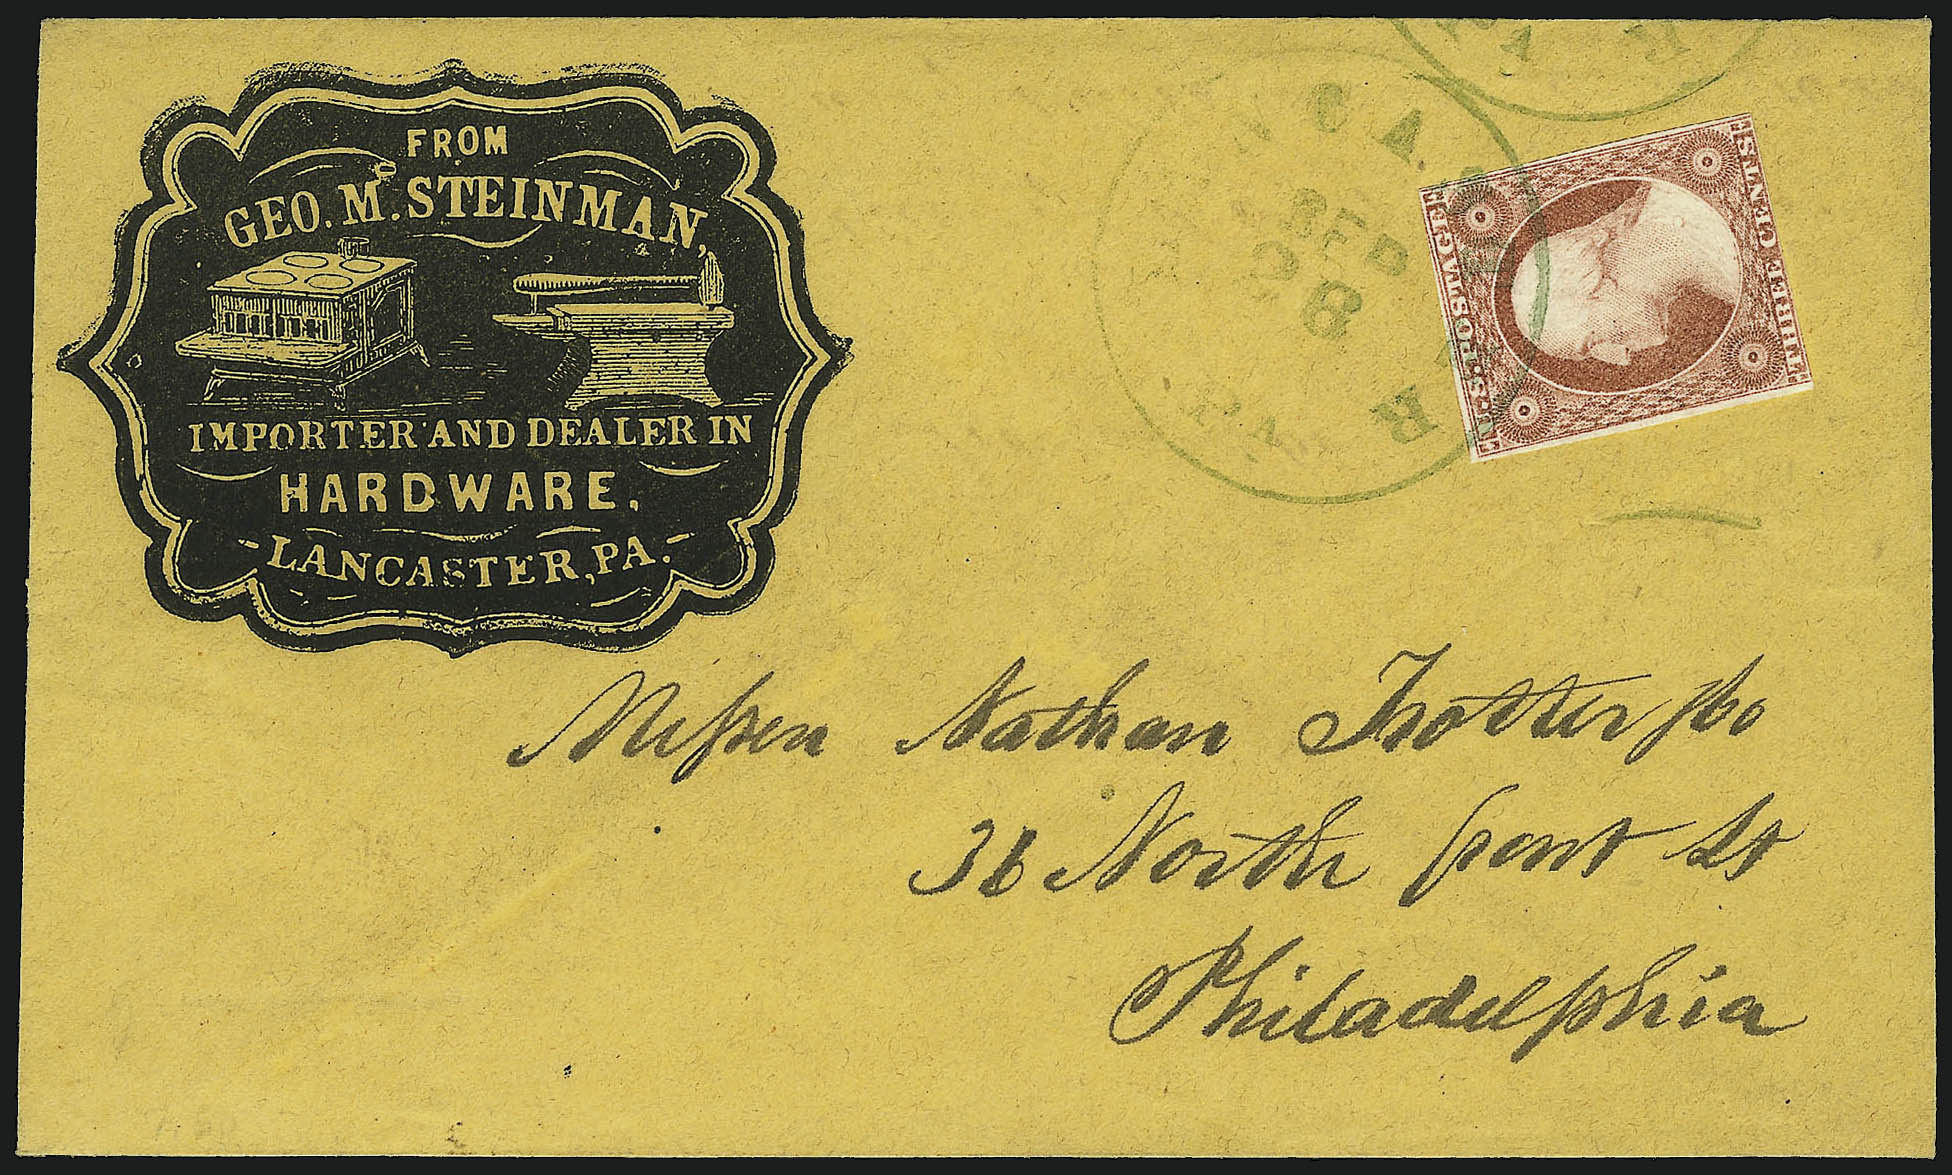 FROM
GEO. M. STEINMAN,
IMPORTER AND DEALER IN
HARDWARE.
LANCASTER, PA.
LANCASTER
SEP
28
PA.
U.S. POSTAGE
THREE CENTS
Messers Nathan Trotter & Co
36 North front St
Philadelphia